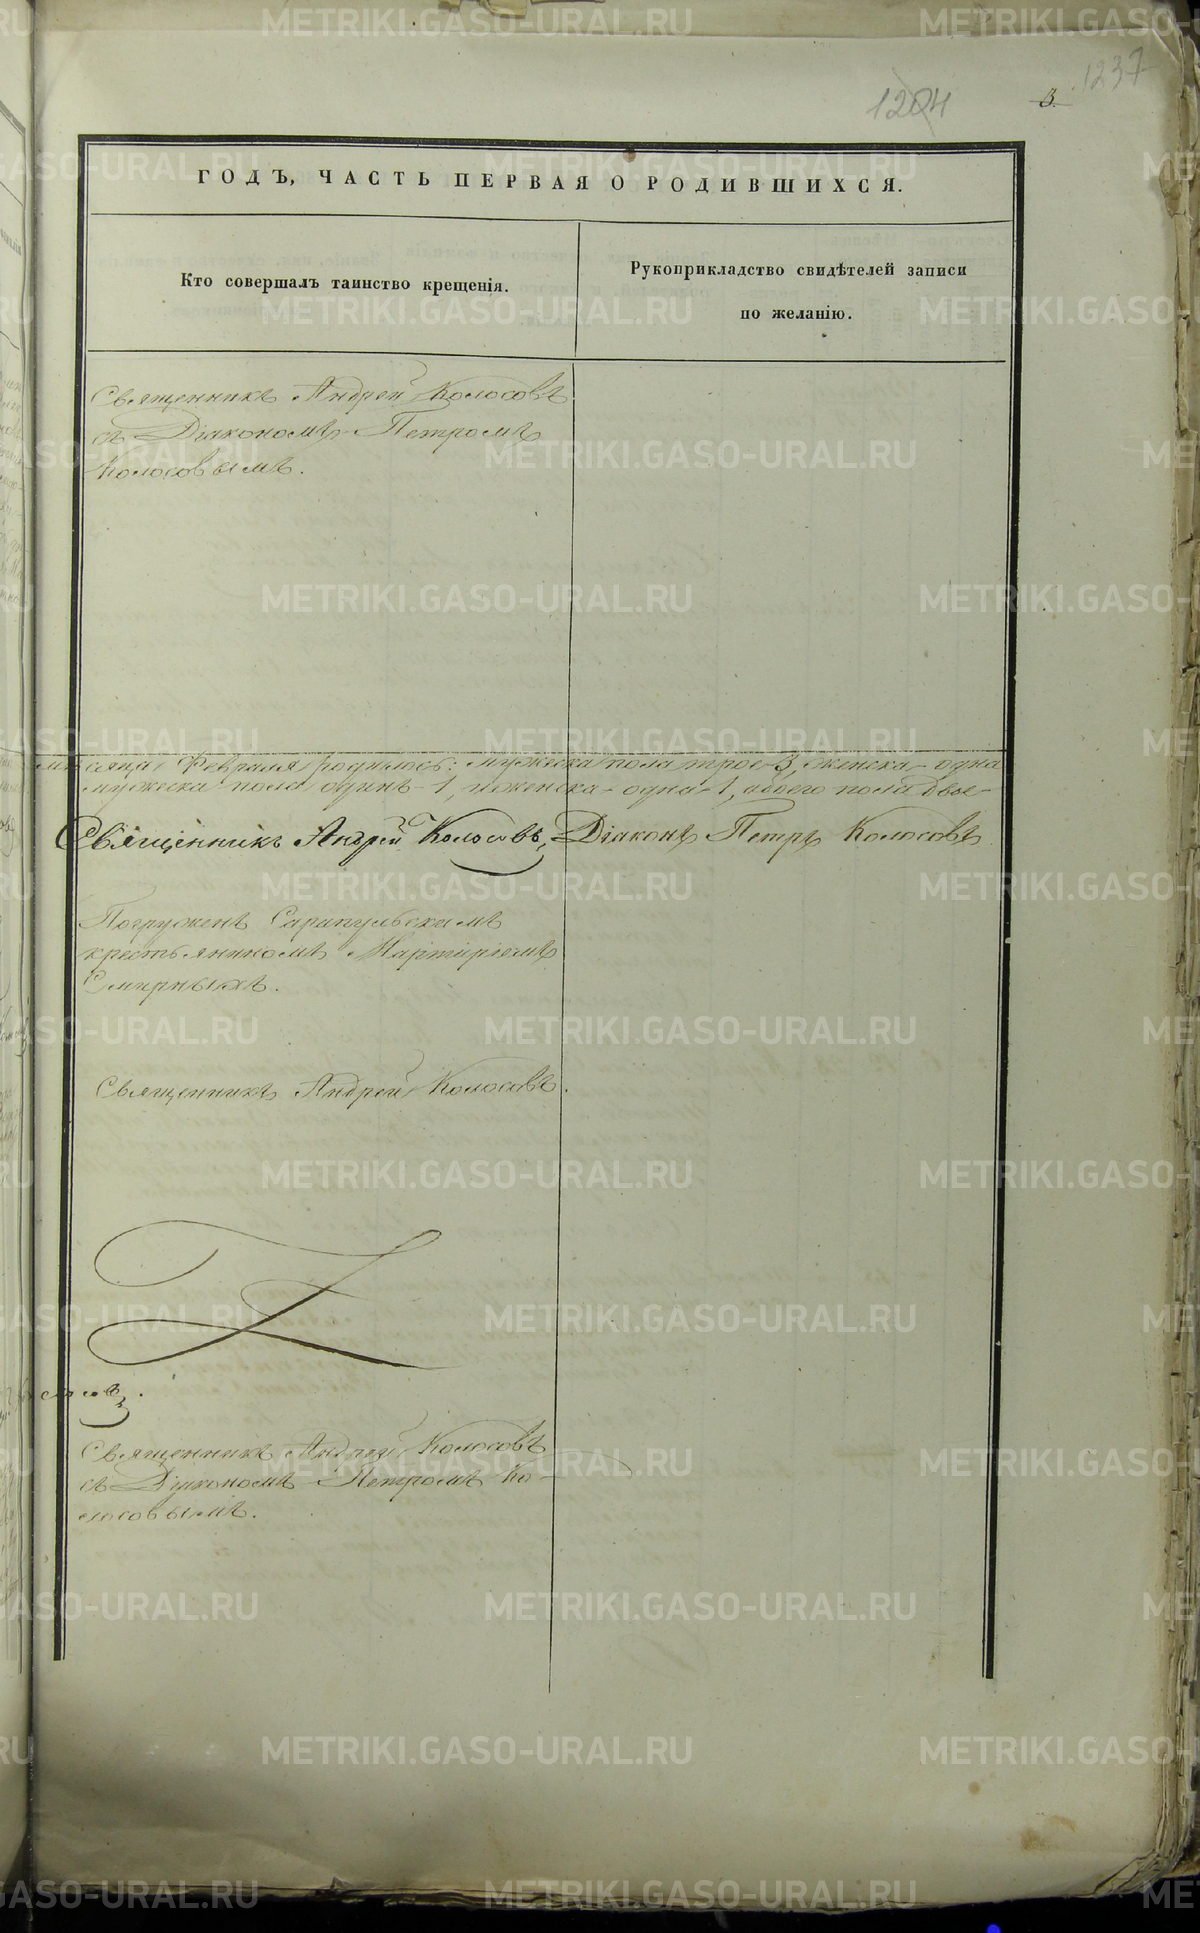 1204
3.
1237
ГОДЪ, ЧАСТЬ ПЕРВАЯ О РОДИВШИХСЯ.
Кто совершалъ таинство крещенія.
Рукоприкладство свидѣтелей записи
по желанію.
Священникъ Андрей Колосовъ
съ Діакономъ Петромъ
Колосовымъ.
мѣсяцѣ Февралѣ родилось: мужеска пола трое-3, женска - одна
мужеска пола одинъ-1, и женска - одна-1, обоего пола двое-
Священникъ Андрей Колосовъ, Діаконъ Петръ Колосовъ
Погруженъ Сарапульскимъ
крестьяниномъ Мартиріемъ
Смирныхъ.
Священникъ Андрей Колосовъ.
Священникъ Андрей Колосовъ
съ Діакономъ Петромъ Ко-
лосовымъ.
METRIKI.GASO-URAL.RU